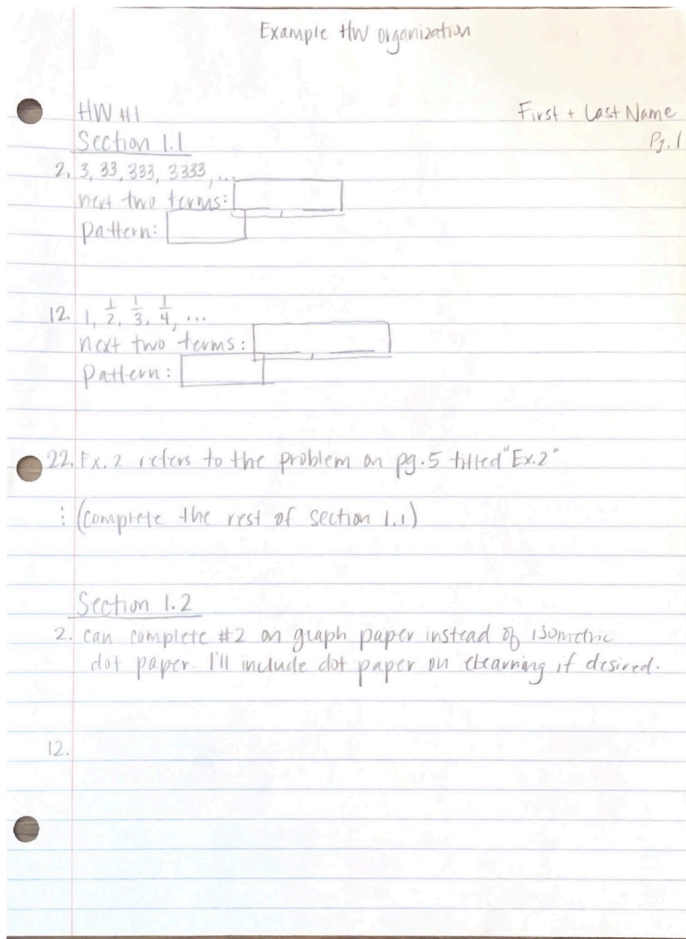 Example HW organization
HW #1
First + Last Name
Section 1.1
Pg. 1
2. 3, 33, 333, 3333, ...
next two terms:
pattern:
12. 1, 1/2, 1/3, 1/4, ...
next two terms:
pattern:
22. Ex. 2 refers to the problem on pg. 5 titled "Ex. 2"
⋮ (complete the rest of section 1.1)
Section 1.2
2. can complete #2 on graph paper instead of isometric
dot paper. I'll include dot paper on elearning if desired.
12.